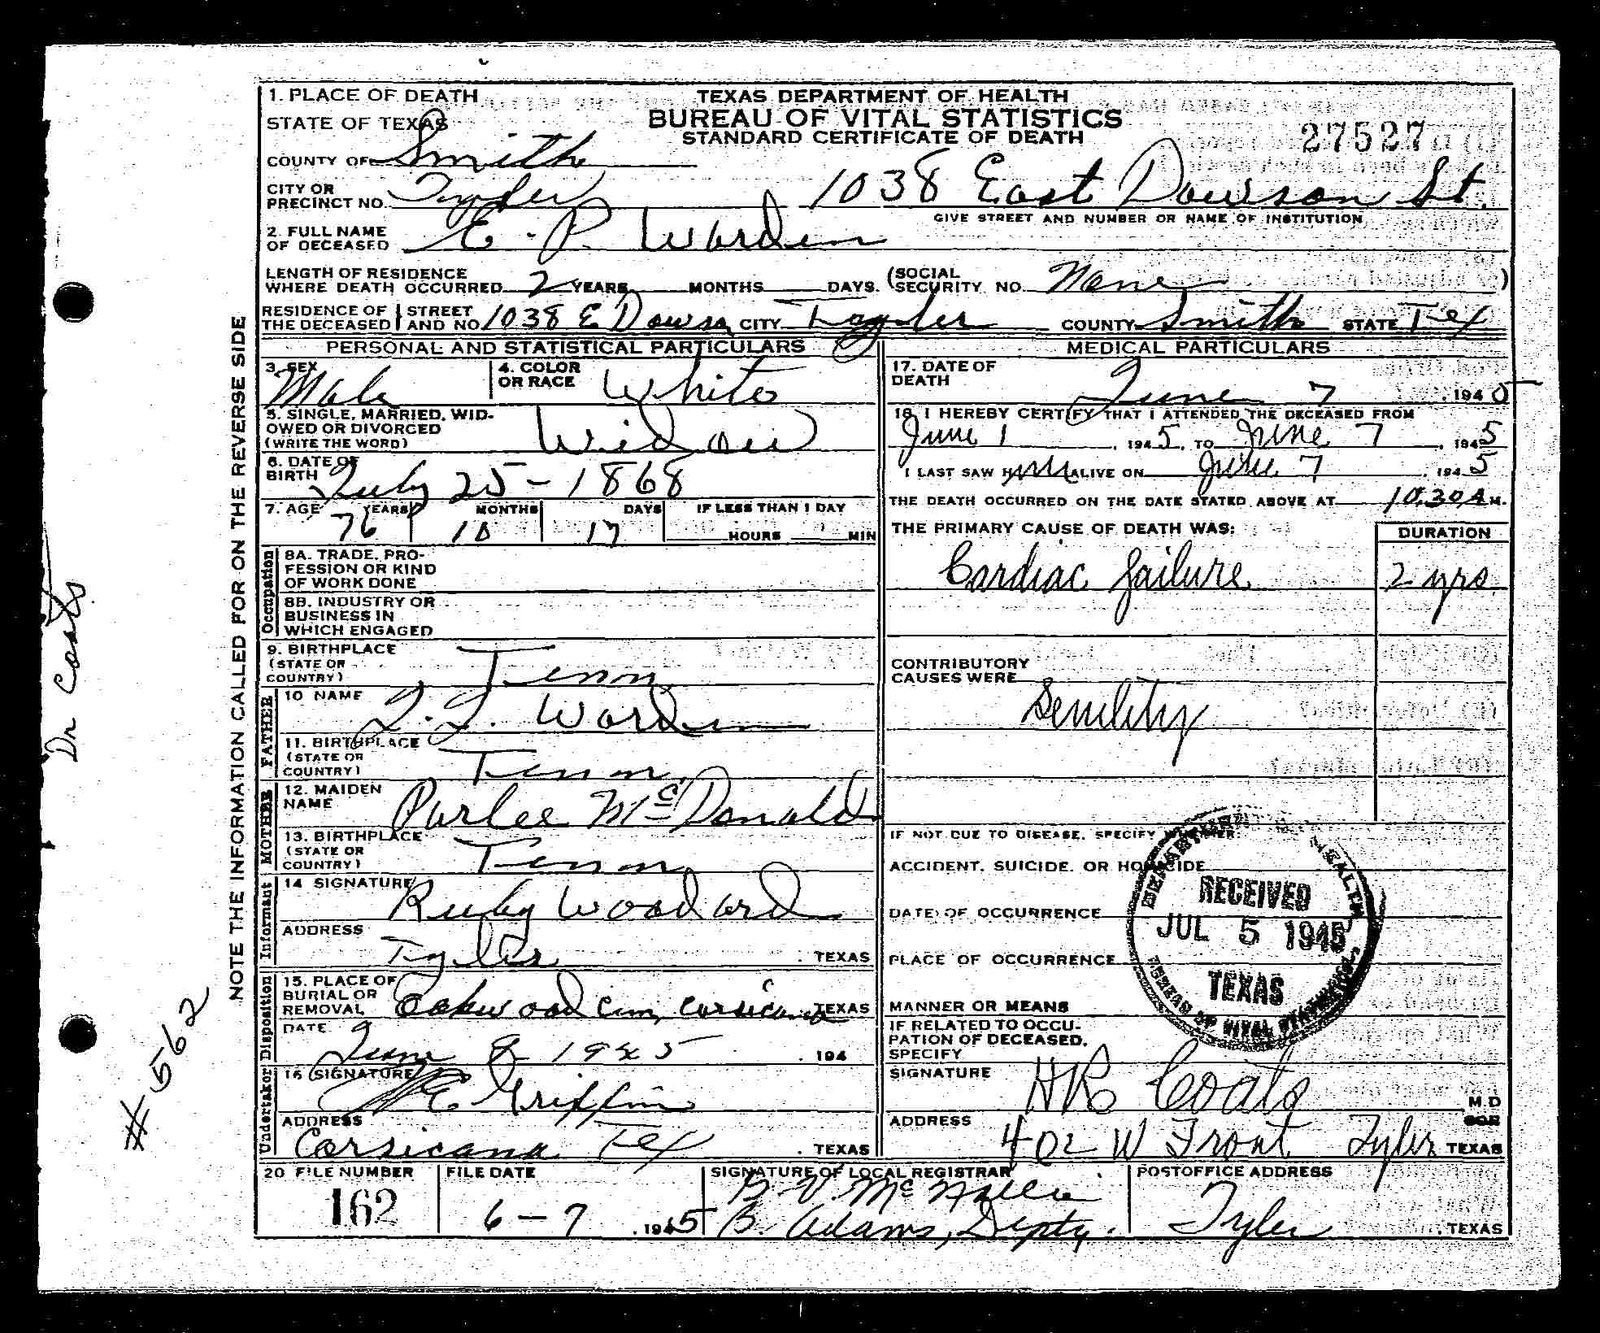 1. PLACE OF DEATH
STATE OF TEXAS
COUNTY OF Smith
CITY OR PRECINCT NO. Tyler
TEXAS DEPARTMENT OF HEALTH
BUREAU OF VITAL STATISTICS
STANDARD CERTIFICATE OF DEATH
27527
1038 East Dawson St.
GIVE STREET AND NUMBER OR NAME OF INSTITUTION
2. FULL NAME OF DECEASED E. P. Warden
LENGTH OF RESIDENCE WHERE DEATH OCCURRED 2 YEARS MONTHS DAYS. (SOCIAL SECURITY NO. None )
RESIDENCE OF THE DECEASED STREET AND NO. 1038 E Dawson CITY Tayler COUNTY Smith STATE Tex
PERSONAL AND STATISTICAL PARTICULARS
3. SEX Male
4. COLOR OR RACE White
5. SINGLE, MARRIED, WIDOWED OR DIVORCED (WRITE THE WORD)
6. DATE OF BIRTH July 25 - 1868
7. AGE YEARS 76 MONTHS 10 DAYS 17 IF LESS THAN 1 DAY HOURS MIN
Occupation
8A. TRADE, PROFESSION OR KIND OF WORK DONE
8B. INDUSTRY OR BUSINESS IN WHICH ENGAGED
9. BIRTHPLACE (STATE OR COUNTRY) Tenn
FATHER
10 NAME Warden
11. BIRTHPLACE (STATE OR COUNTRY) Tenn.
MOTHER
12. MAIDEN NAME Parlee McDonald
13. BIRTHPLACE (STATE OR COUNTRY) Tenn
Informant
14 SIGNATURE Ruby Woodard
ADDRESS Tyler . TEXAS
Disposition
15. PLACE OF BURIAL OR REMOVAL Oakwood Cem, Corsicana TEXAS
DATE June 8 1945 . 194
Undertaker
16 (SIGNATURE) Griffin
ADDRESS Corsicana Tex . TEXAS
MEDICAL PARTICULARS
17. DATE OF DEATH June 7 , 1945
18. I HEREBY CERTIFY THAT I ATTENDED THE DECEASED FROM
June 1 1945, TO June 7 , 1945
I LAST SAW him ALIVE ON June 7 , 1945
THE DEATH OCCURRED ON THE DATE STATED ABOVE AT 10.30 A M.
THE PRIMARY CAUSE OF DEATH WAS: DURATION
Cardiac failure 2 yrs
CONTRIBUTORY CAUSES WERE
Senility
IF NOT DUE TO DISEASE, SPECIFY WHETHER:
ACCIDENT, SUICIDE, OR HOMICIDE
DATE OF OCCURRENCE
PLACE OF OCCURRENCE
MANNER OR MEANS
IF RELATED TO OCCUPATION OF DECEASED, SPECIFY
DEPARTMENT HEALTH
RECEIVED
JUL 5 1945
TEXAS
BUREAU OF VITAL STATISTICS
SIGNATURE HR Coats M.D
ADDRESS 402 W Front Tyler TEXAS
20 FILE NUMBER 162
FILE DATE 6 - 7 , 1945
SIGNATURE OF LOCAL REGISTRAR
B. Adams, Depty.
POSTOFFICE ADDRESS Tyler , TEXAS
NOTE THE INFORMATION CALLED FOR ON THE REVERSE SIDE
Dr Coats
#562